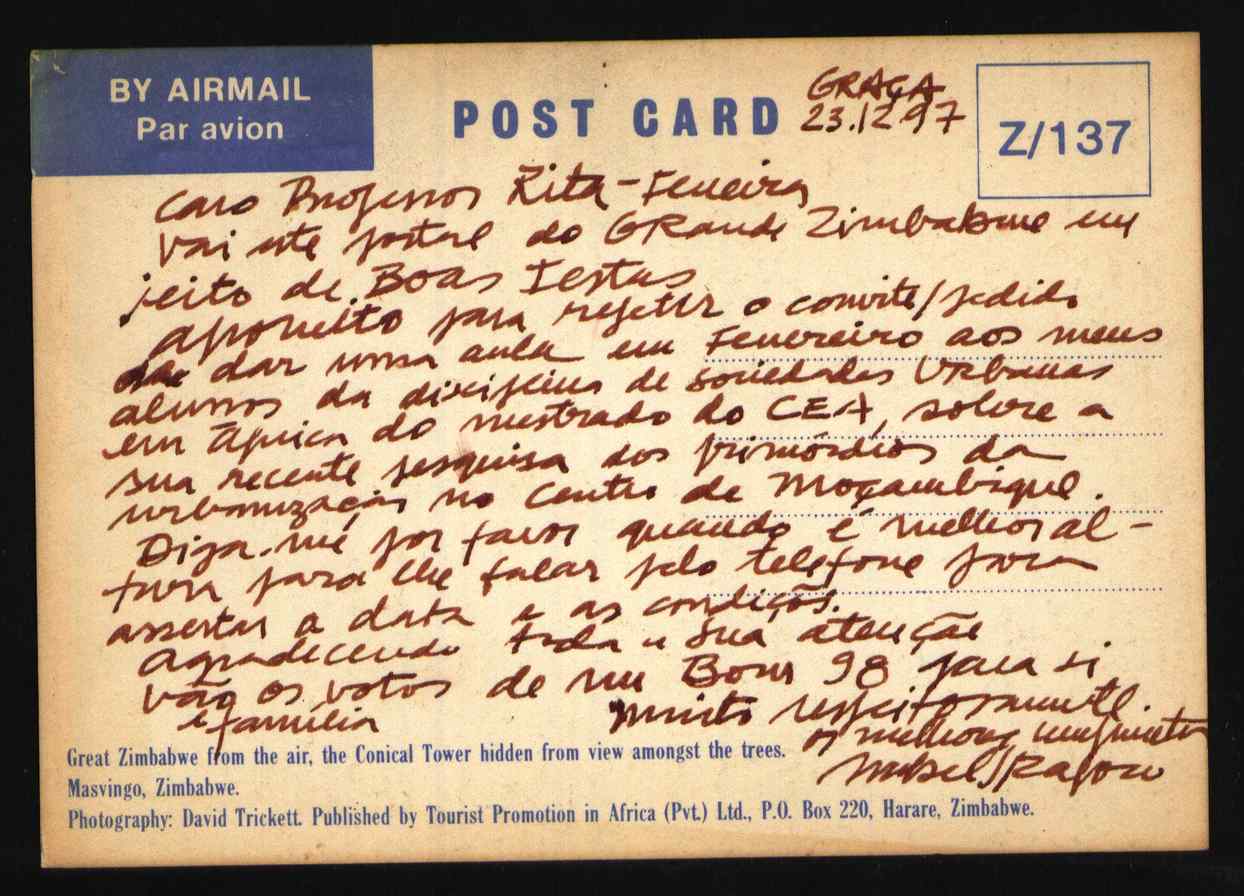 BY AIRMAIL
Par avion
POST CARD
GRAÇA
23.12.97
Z/137
Caro Professor Rita-Ferreira
Vai este postal do GRande Zimbabwe em
jeito de Boas Festas
aproveito para repetir o convite/pedido
de dar uma aula em Fevereiro aos meus
alunos da disciplina de sociedades Urbanas
em África do mestrado do CEA, sobre a
sua recente pesquisa dos primórdios da
urbanização no Centro de Moçambique.
Diga-me por favor quando é melhor al-
tura para lhe falar pelo telefone para
assertar a data e as condições.
Agradecendo toda a sua atenção
vão os votos de um Bom 98 para si
e família
Muito respeitosamente.
os melhores cumprimentos
Great Zimbabwe from the air, the Conical Tower hidden from view amongst the trees.
Masvingo, Zimbabwe.
Photography: David Trickett. Published by Tourist Promotion in Africa (Pvt.) Ltd., P.O. Box 220, Harare, Zimbabwe.